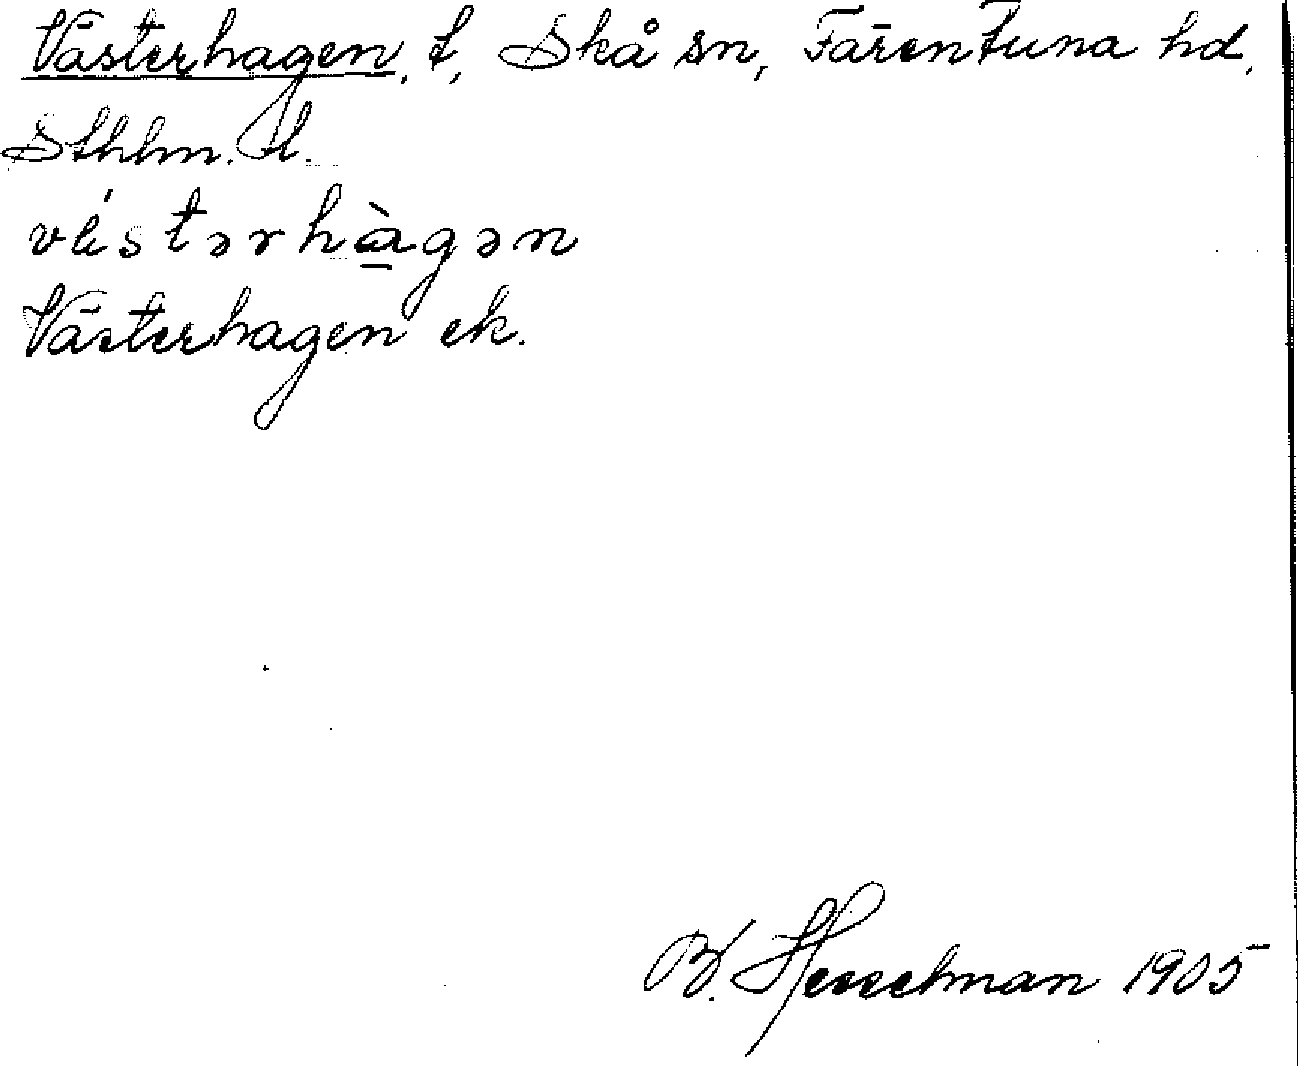 Västerhagen, t, Skå sn, Färentuna hd,
Sthlm. l.
västərhàgən
Västerhagen ek.
B. Hesselman 1905